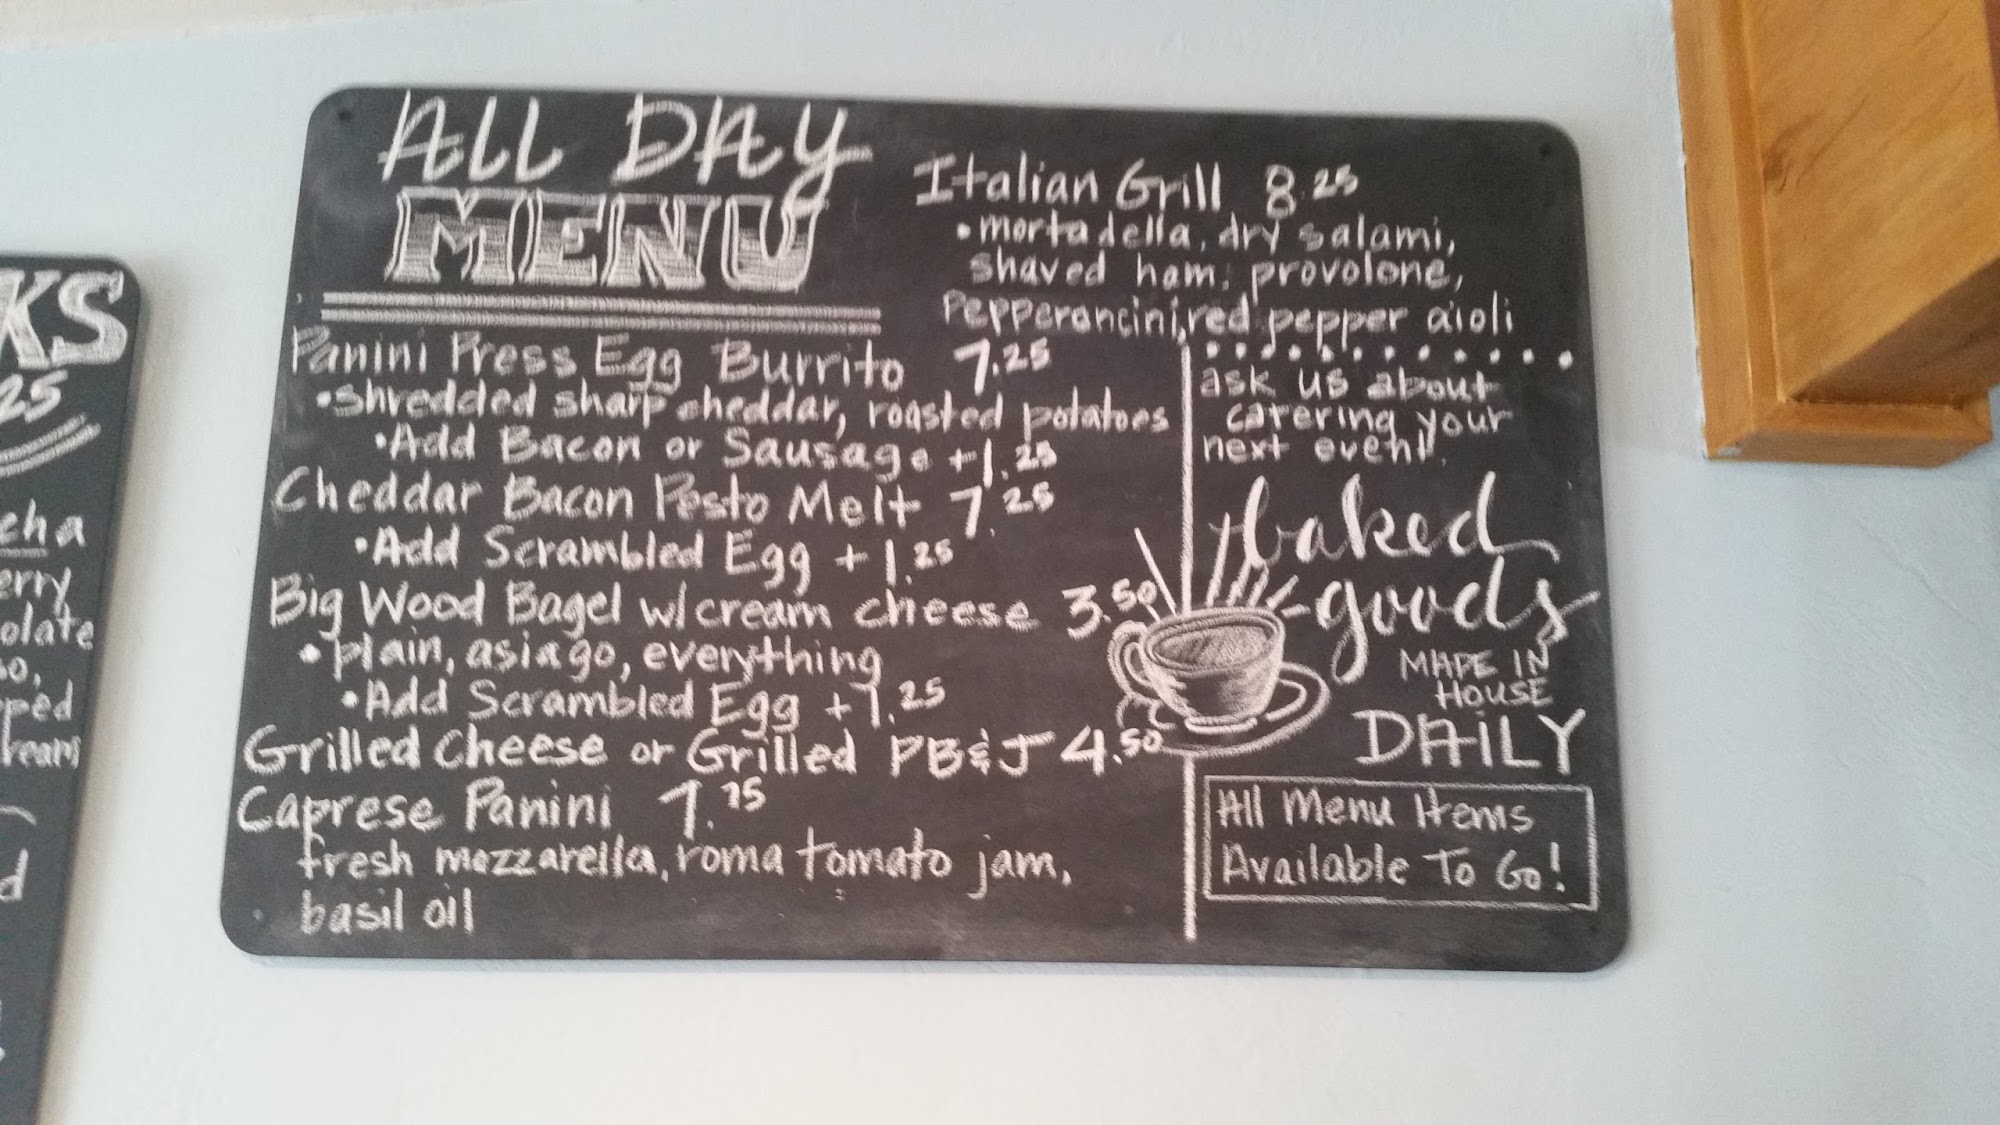 ALL DAY
MENU
Panini Press Egg Burrito 7.25
• shredded sharp cheddar, roasted potatoes
• Add Bacon or Sausage +1.25
Cheddar Bacon Pesto Melt 7.25
• Add Scrambled Egg +1.25
Big Wood Bagel w/cream cheese 3.50
• plain, asiago, everything
• Add Scrambled Egg +1.25
Grilled Cheese or Grilled PB&J 4.50
Caprese Panini 7.75
fresh mozzarella, roma tomato jam,
basil oil
Italian Grill 8.25
• mortadella, dry salami,
shaved ham, provolone,
Pepperoncini, red pepper aioli
ask us about
catering your
next event.
baked
goods
MADE IN
HOUSE
DAILY
All Menu Items
Available To Go!
KS
25
cha
erry
olate
ped
ream